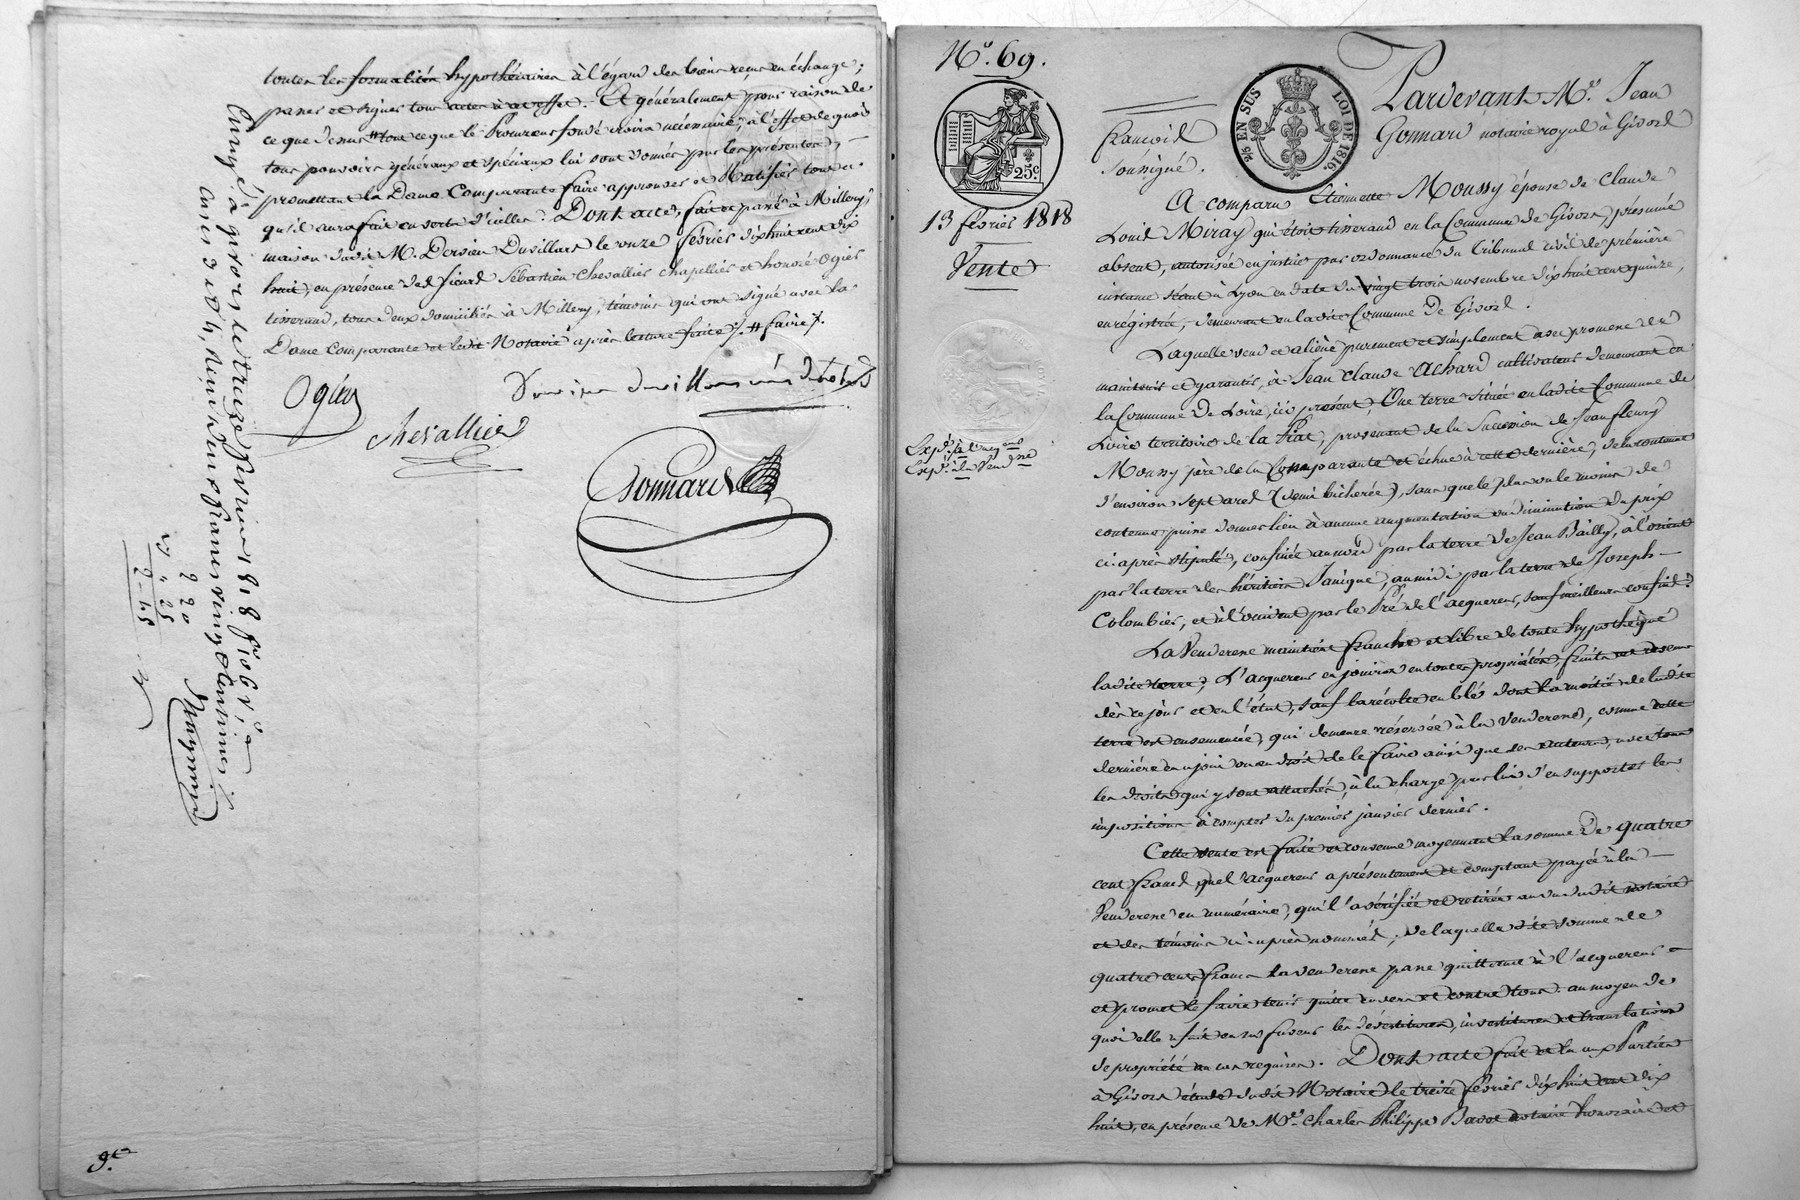 toutes les formalités hypothécaires à l'égard des biens reçus en échange;
passer et signer tous actes à cet effet. Et généralement pour raison de
ce que dessus # tout ce que le Procureur fondé croira nécessaire, à l'effet de quoi
tous pouvoirs généraux et spéciaux lui sont donnés par les présentes,
promettant la Dame Comparante faire approuver et Ratifier tout ce
qu'il aura fait en vertu d'icelles. Dont acte, fait et passé à Millery,
maison dudit M. Dervieu Duvillars le onze février dix huit cent dix
huit, en présence des sieurs Sébastien Chevallier chapelier et honoré Ogier
tisserand, tous deux domiciliés à Millery, témoins qui ont signé avec la
Dame Comparante et ledit Notaire après lecture faite /. # faire /.
Ogier
Chevallier
Gonnard
Enregistré à givors le treize février 1818 f°
deux francs vingt centimes
2 20
25
2 45
9.e
N.° 69.
25 c
13 février 1818
Vente
25 EN SUS
LOI DE 1816.
Pardevant M.e Jean
françois Gonnard notaire royal à Givors
soussigné.
A comparu Etiennette Moussy épouse de Claude
Louis Miray qui étoit tisserand en la Commune de Givors, présumé
absent, autorisée en justice par ordonnance du Tribunal civil de première
instance séant à Lyon en date du vingt trois novembre dix huit cent quinze,
enregistrée, demeurant en ladite Commune de Givors.
Laquelle vend et aliène purement et simplement avec promesse de
maintenir et garantir, à Jean Claude Achard cultivateur demeurant en
la Commune de Loire, ici présent, Une terre située en ladite Commune de
Loire territoire de la Piat, provenant de la Succession de Jean fleury
Moussy père de la Comparante et échue à cette dernière, de la contenue
d'environ sept ares (demi bicherée), sans que le plus ou le moins de
contenue puisse donner lieu à aucune augmentation ou diminution du prix
ci-après stipulé, confinée au nord par la terre de Jean Bailly, à l'orient
par la terre des héritiers Janique, au midi par la terre de Joseph
Colombier, et à l'occident par le Pré de l'acquereur, sauf meilleurs confins.
La Venderesse maintient franche et libre de toute hypothèque
ladite terre, L'acquereur en jouira en toute propriété, fruits et revenus
dès ce jour et en l'état, sauf la récolte en blés dont la moitié de ladite
terre est ensemencée, qui demeure réservée à la Venderesse, comme cette
dernière en a joui ou eu droit de le faire ainsi que ses auteurs, avec tous
les droits qui y sont attachés, à la charge par lui d'en supporter les
impositions à compter du premier janvier dernier.
Cette vente est faite et consentie moyennant la somme de quatre
cent francs que l'acquereur a présentement et comptant payée à la
Venderesse en numéraire, qu'il l'a vérifiée et retirée au vu dudit notaire
et des témoins ci-après nommés, de laquelle dite somme de
quatre cents francs la venderesse passe quittance à l'acquereur
et promet le faire tenir quitte envers et contre tous. au moyen de
quoi elle a fait en sa faveur les dévestitures, investitures et translations
de propriété en cas requises. Dont acte fait et lu aux Parties
à Givors étude dudit Notaire le treize février dix huit cent dix
huit, en présence de M.e Charles Philippe Bavet notaire honoraire et